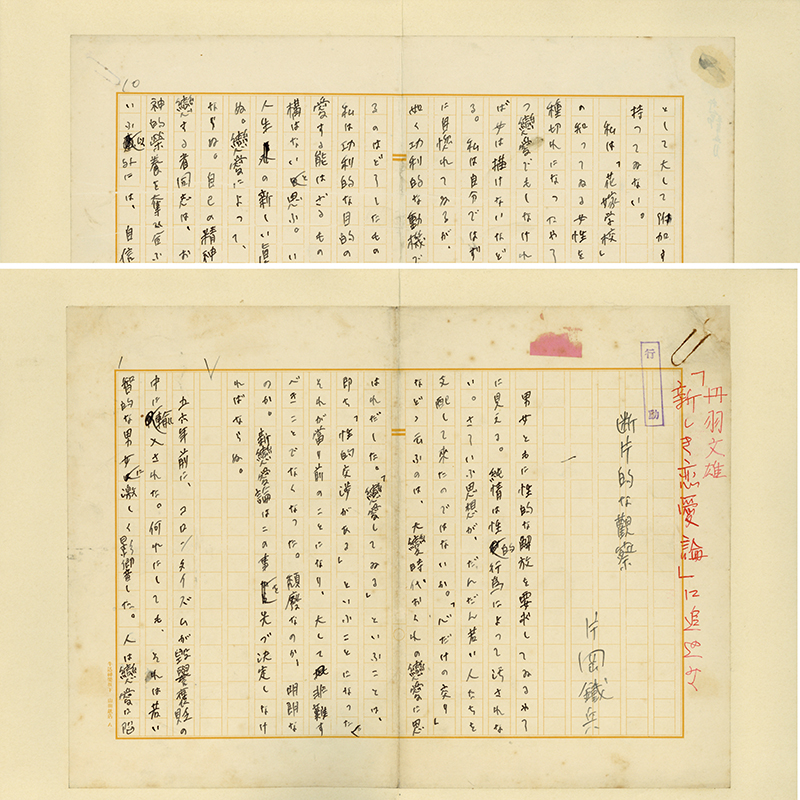 10
として大して附加す
持つてみない。
私は「花嫁学校」
の知つてゐる女性を
種切れになつたやう
つ戀愛でもしなけれ
ば女は描けないなど
る。私は自分ではず
に自惚れてゐるが、
如く功利的な動機で
るのはどうしたもの
私は功利的な目的の
愛する能はざるもの
構はないと思ふ。い
人生の新しい眞
ぬ。戀愛によつて、
ならぬ。自己の精神
戀する者同志は、お
神的榮養を奪ひ合ふ
いふ以外には、自信
丹羽文雄
「新しき恋愛論」に追込
行 助
断片的な觀察
片岡鐵兵
一
男女ともに性的な解放を要求してゐるやう
に見える。純情は性的行爲によつて汚されな
い。さういふ思想が、だんだん若い人たちを
支配して来たのではないか。「心だけの交り」
などと云ふのは、大戀時代おくれの戀愛に思
はれだした。「戀愛してゐる」といふことは、
即ち「性的交渉がある」といふことになつた。
それが當り前のことになり、大して非難す
べきことでなくなつた。頽廢なのか、明朗な
のか。新戀愛論はこの事を先づ決定しなけ
ればならぬ。
五六年前に、コロンタイズムが毀譽褒貶の
中に輸入された。何れにしても、それは若い
智的な男女に激しく影響した。人は戀愛に陷